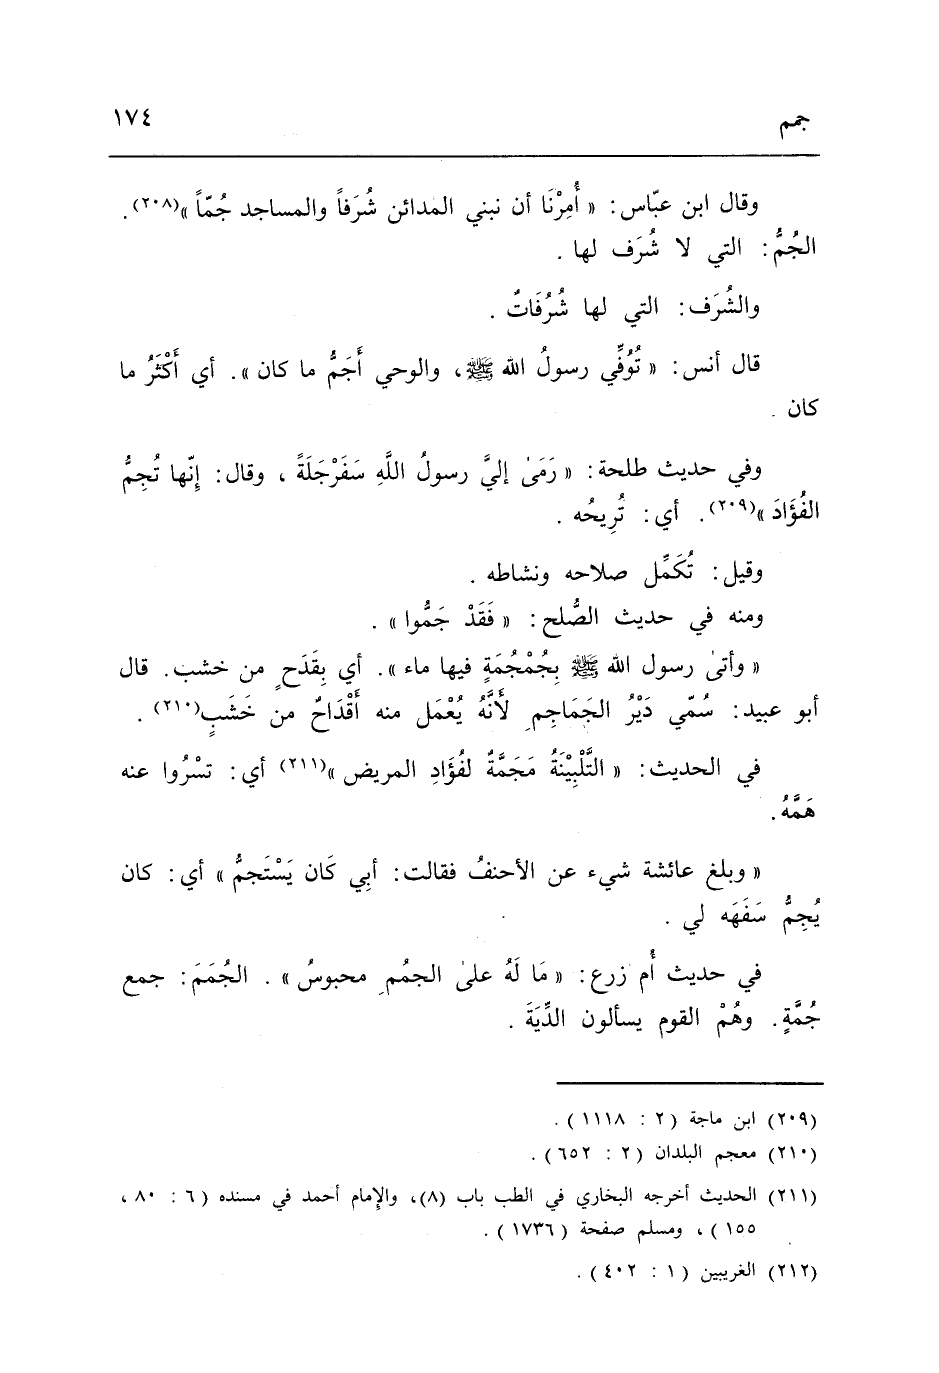 جمم ١٧٤
وقال ابن عبّاس: « أُمِرْنَا أن نبني المدائن شُرَفاً والمساجد جُمّاً »(٢٠٨).
الجُمُّ: التي لا شُرَف لها .
والشُرَف: التي لها شُرُفَاتٌ .
قال أنس: « تُوُفِّي رسولُ الله ﷺ، والوحي أَجَمُّ ما كان ». أي أَكْثَرُ ما
كان .
وفي حديث طلحة: « رَمَىٰ إليَّ رسولُ اللَّهِ سَفَرْجَلَةً ، وقال: إِنّها تُجِمُّ
الفُؤَادَ »(٢٠٩). أي: تُرِيحُه .
وقيل: تُكَمِّل صلاحه ونشاطه .
ومنه في حديث الصُّلح: « فَقَدْ جَمُّوا » .
« وأتىٰ رسول الله ﷺ بِجُمْجُمَةٍ فيها ماء ». أي بِقَدَحٍ من خشب. قال
أبو عبيد: سُمّي دَيْرُ الجَمَاجِمِ لأَنَّهُ يُعْمَل منه أَقْدَاحٌ من خَشَبٍ(٢١٠) .
في الحديث: « التَّلْبِيْنَةُ مَجَمَّةٌ لفُؤَادِ المريض »(٢١١) أي: تسْرُوا عنه
هَمَّهُ.
« وبلغ عائشة شيء عن الأحنفُ فقالت: أبِي كَان يَسْتَجمُّ » أي: كان
يُجِمُّ سَفَهَه لي .
في حديث أُم زرع: « مَا لَهُ علىٰ الجمُمِ محبوسُ » . الجُمَمَ: جمع
جُمَّةٍ. وهُمْ القوم يسألون الدِّيَةَ .
(٢٠٩) ابن ماجة (٢ : ١١١٨) .
(٢١٠) معجم البلدان (٢ : ٦٥٢) .
(٢١١) الحديث أخرجه البخاري في الطب باب (٨)، والإمام أحمد في مسنده (٦ : ٨٠ ،
١٥٥) ، ومسلم صفحة (١٧٣٦) .
(٢١٢) الغريبين (١ : ٤٠٢) .